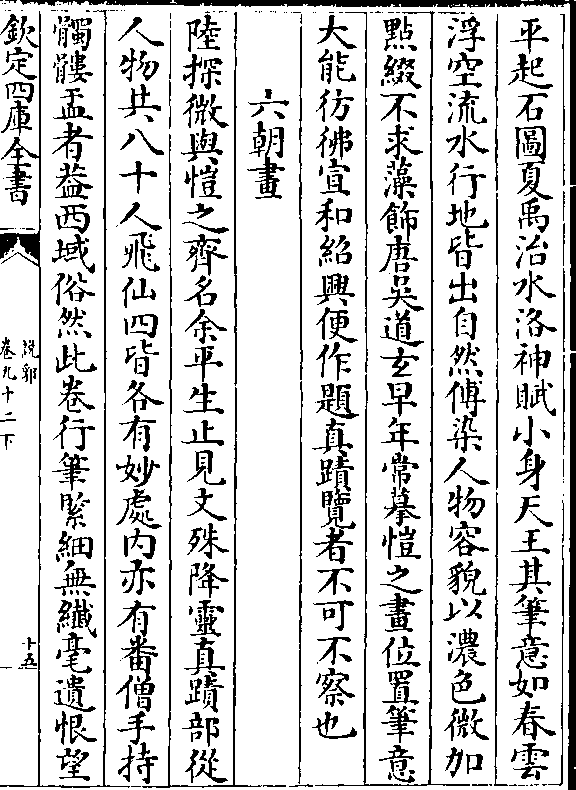 平起石圖夏禹治水洛神賦小身天王其筆意如春雲
浮空流水行地皆出自然傅染人物容貌以濃色微加
點綴不求藻飾唐吳道玄早年常摹愷之畫位置筆意
大能彷彿宣和紹興便作題真蹟覽者不可不察也
六朝畫
陸探微與愷之齊名余平生止見文殊降靈真蹟部從
人物共八十人飛仙四皆各有妙處内亦有番僧手持
髑髏盂者葢西域俗然此卷行筆緊細無纖毫遺恨望
欽定四庫全書
説郛
卷九十二下
十五